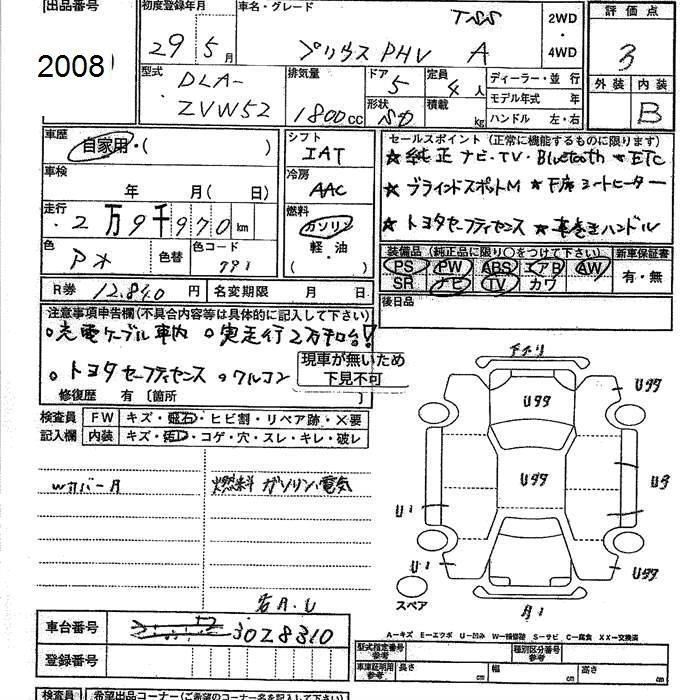 出品番号
2008
初度登録年月
29年5月
車名・グレード
TSS
プリウスPHV A
2WD
・
4WD
評価点
3
外装 内装
B
型式
DLA-
ZVW52
排気量
1800cc
ドア
5
形状
定員
4人
積載
kg
ディーラー・並行
モデル年式 年
ハンドル 左・右
車歴
自家用・( )
車検
年 月( 日)
走行
2万9千970km
色
色替
色コード
791
シフト
IAT
冷房
AAC
燃料
ガソリン
軽・油
( )
セールスポイント(正常に機能するものに限ります)
★純正ナビ・TV・Bluetooth ★ETC
★ブラインドスポットM ★F席シートヒーター
★トヨタセーフティセンス ★革巻きハンドル
装備品(純正品に限り○をつけて下さい)
PS PW ABS エアB AW
SR ナビ TV カワ
新車保証書
有・無
R券 12,840円
名変期限 月 日
後日品
注意事項申告欄(不具合内容等は具体的に記入して下さい)
○充電ケーブル車内 ○実走行2万キロ台!
○トヨタセーフティセンス ○クルコン
現車が無いため
下見不可
修復歴 有〔箇所 〕
検査員
記入欄
FW キズ・飛石・ヒビ割・リペア跡・X要
内装 キズ・汚レ・コゲ・穴・スレ・キレ・破レ
Wカバー A
燃料 ガソリン、電気
U99
U99
U99
U9
U1
U1
U99
A1
スペア
A-キズ E-エクボ U-凹み W-補修跡 S-サビ C-腐食 XX-交換済
車台番号
3028310
登録番号
型式指定番号
種別区分番号
車庫証明用
参考資料
長さ cm 幅 cm 高さ cm
検査員
希望出品コーナー(ご希望のコーナー名を記入下さい)